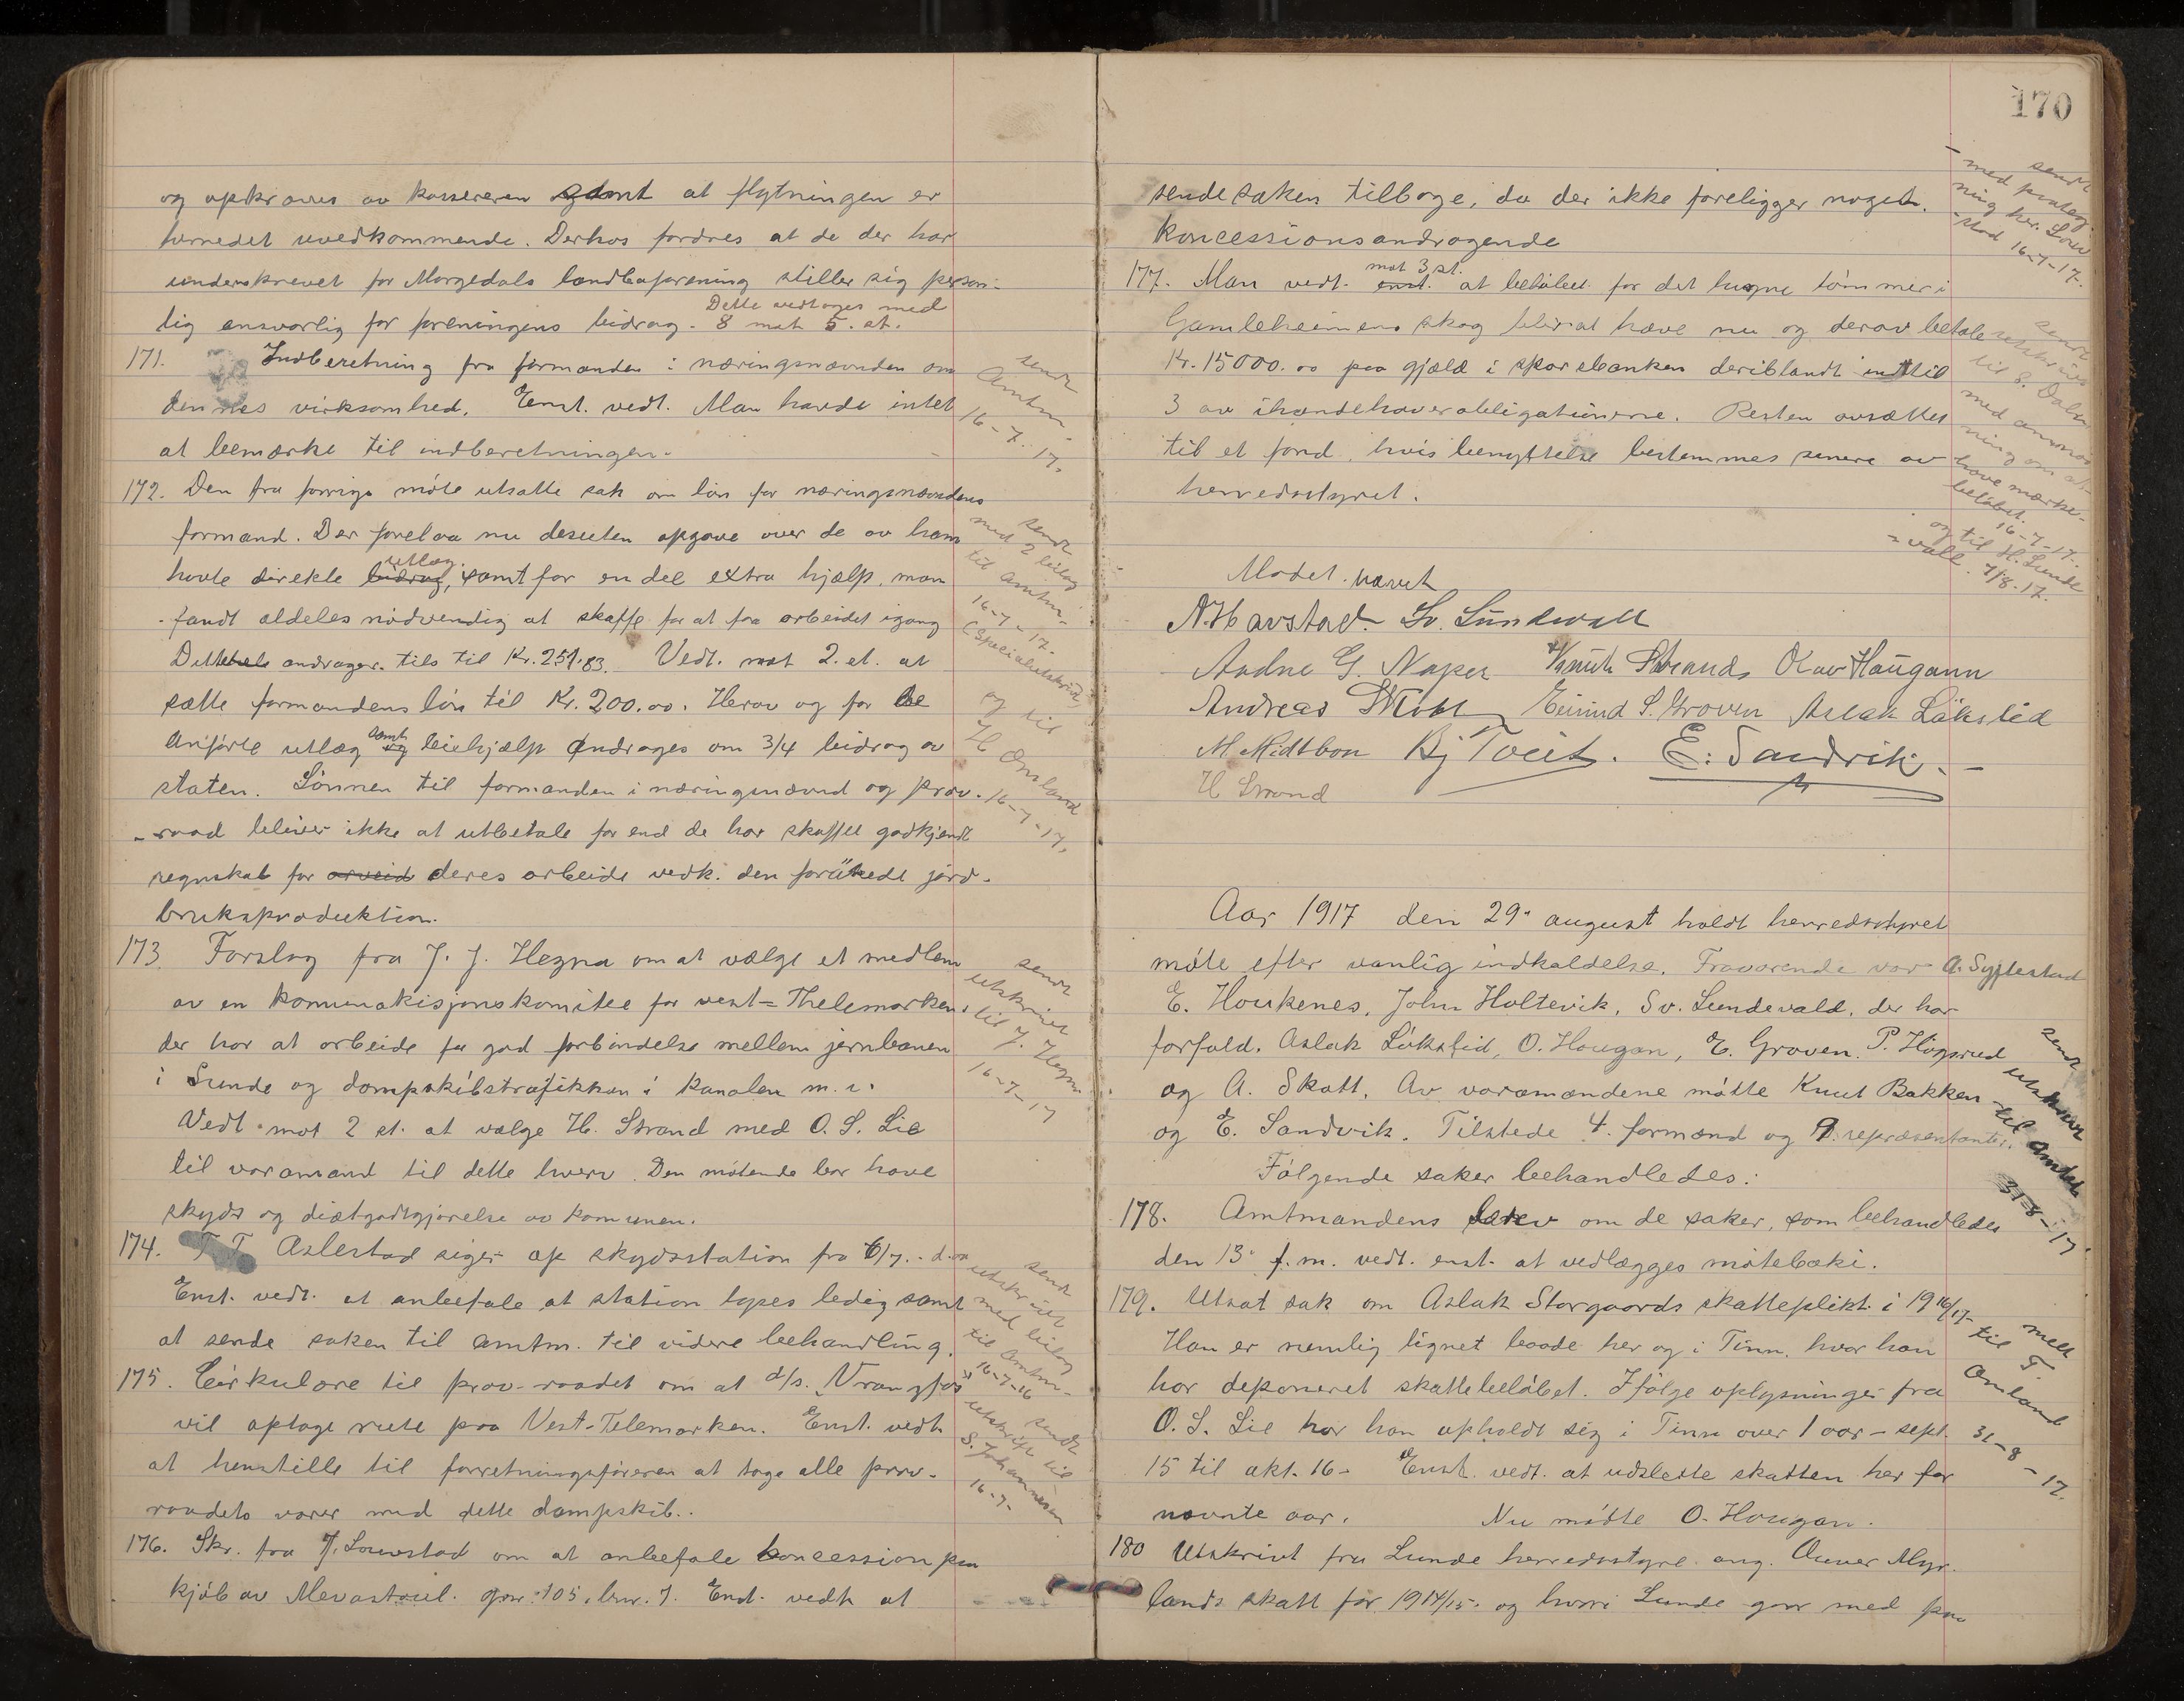 og opkræves av kassereren samt at flytningen er
herredet uvedkommende. Derhos fordres at de der har
underskrevet for Morgedals landboforening stiller sig person-
lig ansvarlig for foreningens bidrag. Dette vedtages med
8 mot 5. st.
171. Indberetning fra formanden i næringsnævnden om
dennes virksomhed. Enst. vedt. Man havde intet
at bemærke til indberetningen.
sendt
Amtm.
16-7.17.
172. Den fra forrige møte utsatte sak om løn for næringsnævndens
formand. Der forelaa nu desuten opgave over de av ham
havte direkte bidrag utlæg, samt for en del extra hjælp, man
fandt aldeles nødvendig at skaffe for at faa arbeidet igang
Dette andrager tils til Kr. 251.83. Vedt. mot 2. st. at
sætte formandens løn til Kr. 200.00. Herav og for de
anførte utlæg og samt leiehjælp andrages om 3/4 bidrag av
staten. Lønnen til formanden i næringsnævnd og prov.
-raad bliver ikke at utbetale før end de har skaffet godkjendt
regnskab for arveid deres arbeide vedk. den forøkede jord-
bruksproduktion.
sendt
med 2 bilag
til amtm.
16-7-17.
(Specialutskrift)
og til
H Omland
16-7-17.
173. Forslag fra J. J. Hegna om at vælge et medlem
av en komunakisjonskomitee for vest=Thelemarken,
der har at arbeide for god forbindelse mellem jernbanen
i Lunde og dampskibstrafikken i kanalen m. v.
Vedt. mot 2 st. at vælge H. Strand med O. S. Lie
til varamand til dette hverv. Den møtende bør have
skyds og diætgodtgjørelse av komunen.
sendt
utskrivt
til J. Hegna
16-7-17
174. T T Aslestad siger op skydsstation fra 6/7. d.aa
Enst. vedt. at anbefale at station lyses ledig samt
at sende saken til amtm. til videre behandling.
sendt
utskrivt
med bilag
til Amtm-
16-7-16
175. Cirkulære til prov-raadet om at d/s. "Vrangfos"
vil optage rute paa Vest-Telemarken. Enst. vedt.
at henstille til forretningsføreren at tage alle prov-
raadets varer med dette dampskib..
sendt
utskrift til
S. Johannesen
16-7-
176. Skr. fra J. Louvstad om at anbefale koncession paa
kjøb av Mevastoul. gnr. 105, bnr. 7. Enst. vedt. at
170
sende saken tilbage, da der ikke foreligger noget
koncessionsandragende
sendt
med paateg-
ning her. Louv
-stad 16-7-17.
177. Man vedt. enst. mot 3 st. at beløbet for det hugne tømmer i
Gamleheimens skog blir at hæve nu og derav betale
Kr. 15000.00 paa gjæld i sparebanken deriblandt indtil
3 av ihændehaverobligationerne. Resten avsættes
til et fond, hvis benyttelse bestemmes senere av
herredsstyret.
sendt
utskrivt
til S. Dalen
med anmod-
ning om at
have mærke-
beløbet.
16-7-17.
og til H. Lunde
-vall. 7/8-17.
Mødet hævet
N. Havstad Sv. Lundevall
Aadne G. Naper Knut Strands Olav Haugann
Andreas Skott Eivind S. Groven Aslak Løkslid
M. Midtbøn Bj Tveit. E. Sandvik.
H Strand
Aar 1917 den 29. august holdt herredsstyret
møte efter vanlig indkaldelse. Fraværende var A. Sygtestad
E. Houkenes, John Holtevik, Sv. Lundevald, der har
forfald. Aslak Løkslid, O. Hougan, E. Groven. P. Høgsrud
og A. Skott. Av varamændene møtte Knut Bakken
og E. Sandvik. Tilstede 4. formænd og 9. repræsentanter.
Følgende saker behandledes:
178. Amtmandens brev om de saker, som behandledes
den 13. f. m. vedt. enst. at vedlægges møteboki.
sendt
utskrivt
til amtet
31-8-17
179. Utsat sak om Aslak Storgaards skatteplikt i 1916/17.
Han er nemlig lignet baade her og i Tinn, hvor han
har deponeret skattebeløbet. Ifølge oplysninger fra
O. S. Lie har han opholdt sig i Tinn over 1 aar - sept.
15 til okt. 16. Enst. vedt. at udslette skatten her for
nævnte aar. Nu møtte O. Hougan.
meld
til T.
Omland
31-8-17.
180 Utskrivt fra Lunde herredsstyre ang. Anver Myr-
lands skatt for 1914/15. og hvori Lunde gaar med paa